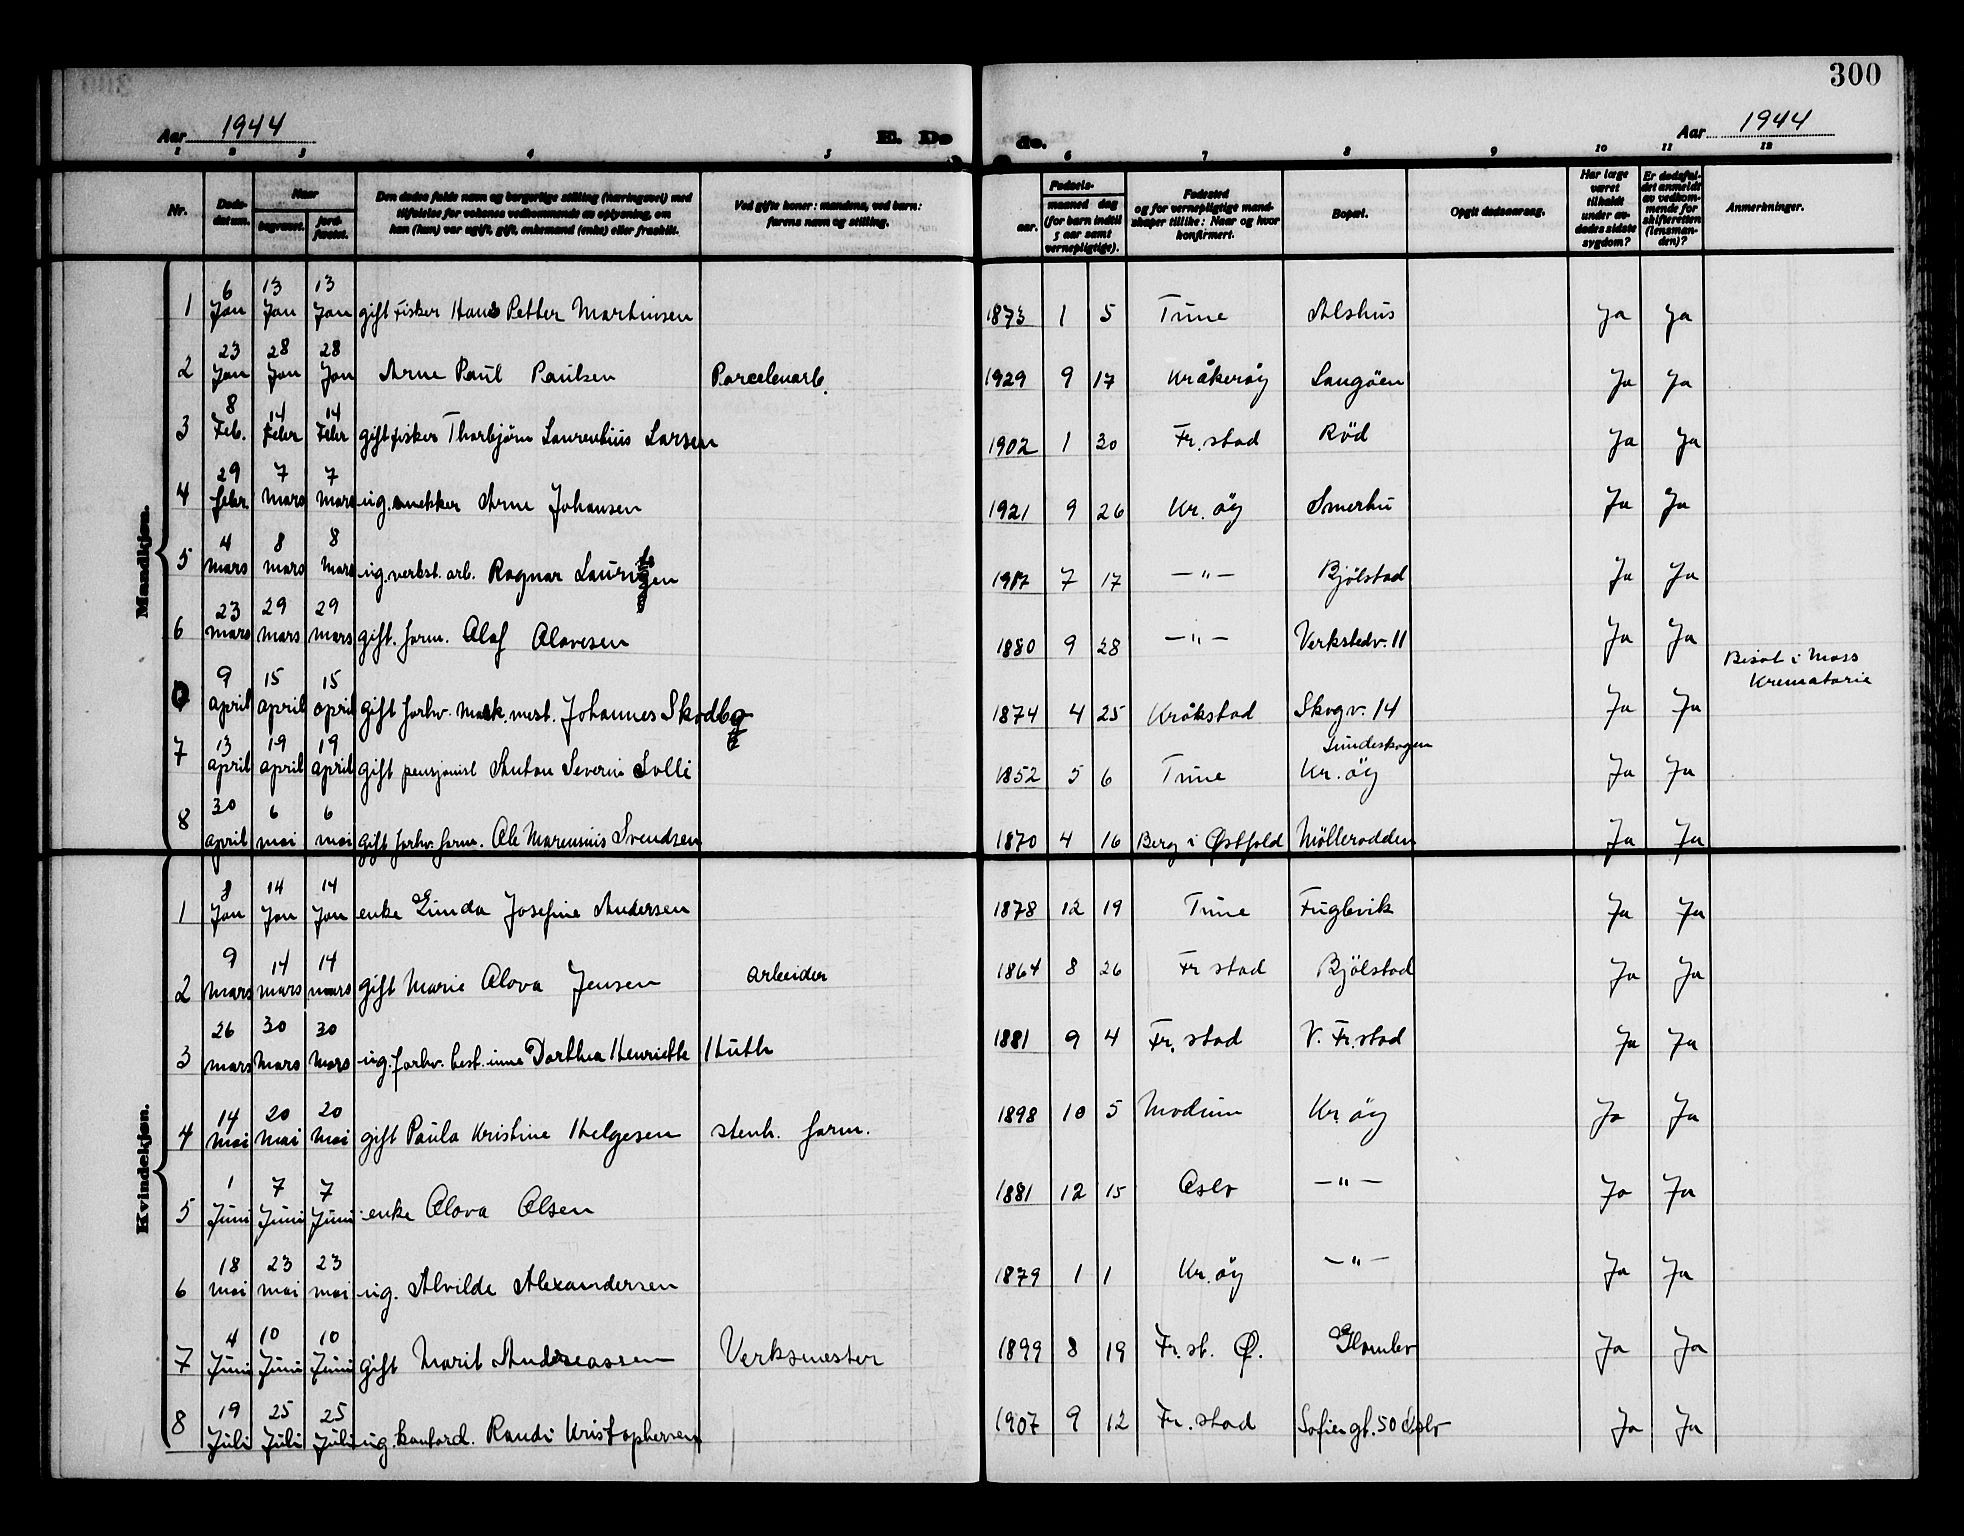 300
Aar 1944 E. Dø
de. Aar 1944
1 2 3 4 5 6 7 8 9 10 11 12
Nr. Døds-datum. Naar begravet. jord-fæstet. Den dødes fulde navn og borgerlige stilling (næringsvei) med tilføielse for voksnes vedkommende av oplysning, om han (hun) var ugift, gift, enkemand (enke) eller fraskilt. Ved gifte koner: mandens, ved barn: farens navn og stilling. Fødsels- aar. maaned dag (for barn indtil 5 aar samt vernepligtige). Fødested og for vernepligtige mandskaper tillike: Naar og hvor konfirmert. Bopæl. Opgit dødsaarsag. Har læge været tilkaldt under avdødes sidste sygdom? Er dødsfaldet anmeldt av vedkommende for skifteretten (lensmanden)? Anmerkninger.
Mandkjøn.
1 6 Jan 13 Jan 13 Jan gift fisker Hans Petter Martinsen 1873 1 5 Tune Alshus Ja Ja
2 23 Jan 28 Jan 28 Jan Arne Paul Paulsen Porcelenarb. 1929 9 17 Kråkerøy Langöen Ja Ja
3 8 Feb. 14 Febr 14 Febr gift fisker Thorbjørn Laurentius Larsen 1902 1 30 Fr.stad Röd Ja Ja
4 29 febr. 7 mars 7 mars ug. snekker Arne Johansen 1921 9 26 Kr.öy Smerhu Ja Ja
5 4 mars 8 mars 8 mars ug. verkst. arb. Ragnar 1917 7 17 —"— Bjölstad Ja Ja
6 23 mars 29 mars 29 mars gift. form. Olaf Olavesen 1880 9 28 —"— Verkstedv. 11 Ja Ja
0 9 april 15 april 15 april gift forhv. mask. mest. Johannes Skodbg 1874 4 25 Kråkstad Skogv. 14 Ja Ja Bisat i Moss Krematorie
7 13 april 19 april 19 april gift pensjonist Anton Severin Solli 1852 5 6 Tune Lundeskogen Kr.öy Ja Ja
8 30 april 6 mai 6 mai gift forhv. form. Ole Marennius Svendsen 1870 4 16 Berg i Østfold Möllerodden Ja Ja
Kvindekjøn.
1 8 Jan 14 Jan 14 Jan enke Gunda Josefine Andersen 1878 12 19 Tune Fuglevik Ja Ja
2 9 mars 14 mars 14 mars gift Marie Olava Jensen arbeider 1864 8 26 Fr stad Bjölstad Ja Ja
3 26 mars 30 mars 30 mars ug. forhv. best. inne Dorthea Henriette Huth 1881 9 4 Fr. stad V. Fr.stad Ja Ja
4 14 mai 20 mai 20 mai gift Paula Kristine Helgesen stenh. form. 1898 10 5 Modum Kr. öy Ja Ja
5 1 Juni 7 Juni 7 Juni enke Olava Olsen 1881 12 15 Oslo —"— Ja Ja
6 18 mai 23 mai 23 mai ug. Alvilde Alexandersen 1879 1 1 Kr. öy —"— Ja Ja
7 4 Juni 10 Juni 10 Juni gift Marit Andreassen Verksmester 1899 8 19 Fr. st. Ø. Glombo Ja Ja
8 19 Juli 25 Juli 25 Juli ug. kontord. Randi Kristophersen 1907 9 12 Fr. stad Sofies gt. 50 Oslo Ja Ja